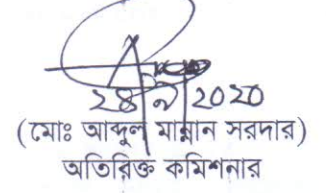 ২৪/৯/২০২০
(মোঃ আব্দুল মান্নান সরদার)
অতিরিক্ত কমিশনার